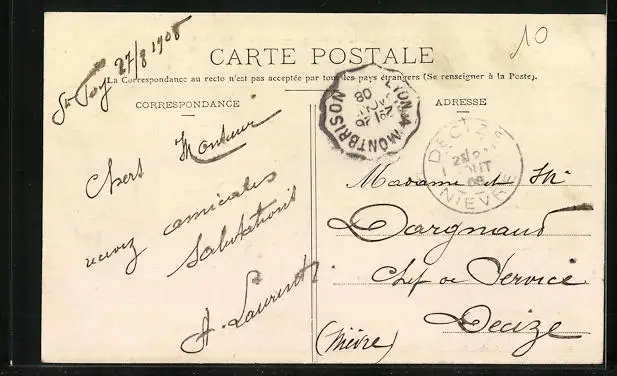 Ste Foy 27/8 1908
10
CARTE POSTALE
La Correspondance au recto n'est pas acceptée par tous les pays étrangers (Se renseigner à la Poste).
CORRESPONDANCE
ADRESSE
LYON A MONTBRISON
08
DECIZE
AOUT
08
NIEVRE
Chers Monsieur
recevez amicales
Salutations
A. Laurent
Madame et Mr
Dargnaud
Chef de Service
Decize
(Nièvre)